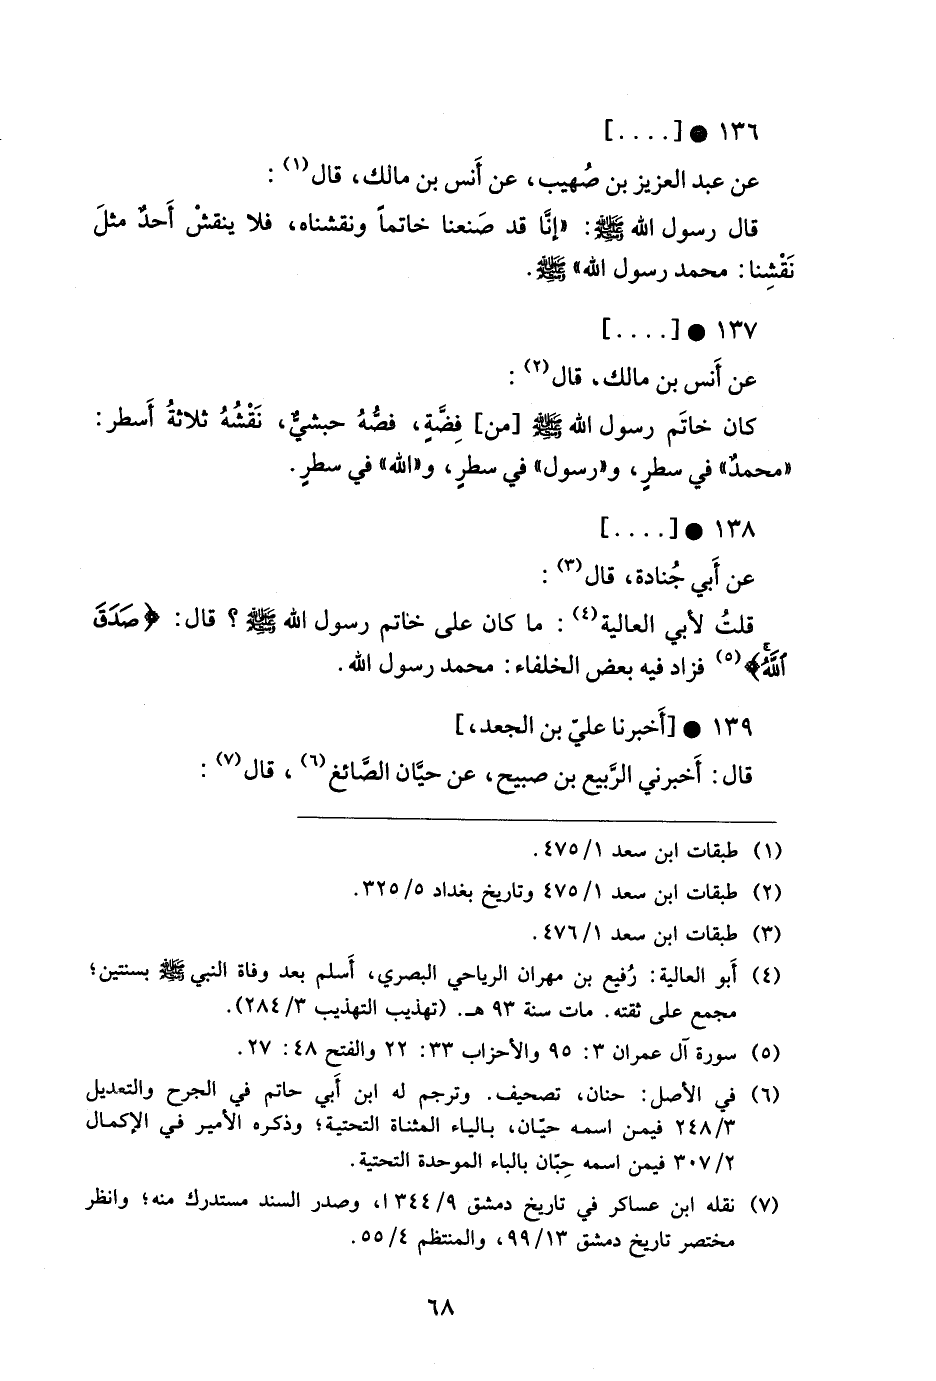 ١٣٦ ● [....]
عن عبد العزيز بن صُهيب، عن أَنس بن مالك، قال(١) :
قال رسول الله ﷺ: «إنَّا قد صَنعنا خاتماً ونقشناه، فلا ينقشْ أَحدٌ مثلَ
نَقْشِنا: محمد رسول الله» ﷺ.
١٣٧ ● [....]
عن أَنس بن مالك، قال(٢) :
كان خاتَم رسول الله ﷺ [من] فِضَّةٍ، فصُّهُ حبشيٌّ، نَقْشُهُ ثلاثةُ أَسطر:
«محمدٌ» في سطرٍ، و«رسول» في سطرٍ، و«الله» في سطرٍ.
١٣٨ ● [....]
عن أَبي جُنادة، قال(٣) :
قلتُ لأبي العالية(٤) : ما كان على خاتم رسول الله ﷺ؟ قال: ﴿صَدَقَ
ٱللَّهُۗ﴾(٥) فزاد فيه بعض الخلفاء: محمد رسول الله.
١٣٩ ● [أَخبرنا عليّ بن الجعد،]
قال: أَخبرني الرَّبيع بن صبيح، عن حيَّان الصَّائغ(٦) ، قال(٧) :
(١) طبقات ابن سعد ١/ ٤٧٥.
(٢) طبقات ابن سعد ١/ ٤٧٥ وتاريخ بغداد ٥/ ٣٢٥.
(٣) طبقات ابن سعد ١/ ٤٧٦.
(٤) أَبو العالية: رُفيع بن مهران الرياحي البصري، أَسلم بعد وفاة النبي ﷺ بسنتين؛
مجمع على ثقته. مات سنة ٩٣ هـ. (تهذيب التهذيب ٣/ ٢٨٤).
(٥) سورة آل عمران ٣: ٩٥ والأحزاب ٣٣: ٢٢ والفتح ٤٨: ٢٧.
(٦) في الأصل: حنان، تصحيف. وترجم له ابن أَبي حاتم في الجرح والتعديل
٣/ ٢٤٨ فيمن اسمه حيّان، بالياء المثناة التحتية؛ وذكره الأمير في الإكمال
٢/ ٣٠٧ فيمن اسمه حِبّان بالباء الموحدة التحتية.
(٧) نقله ابن عساكر في تاريخ دمشق ٩/ ٣٤٤أ، وصدر السند مستدرك منه؛ وانظر
مختصر تاريخ دمشق ١٣/ ٩٩، والمنتظم ٤/ ٥٥.
٦٨